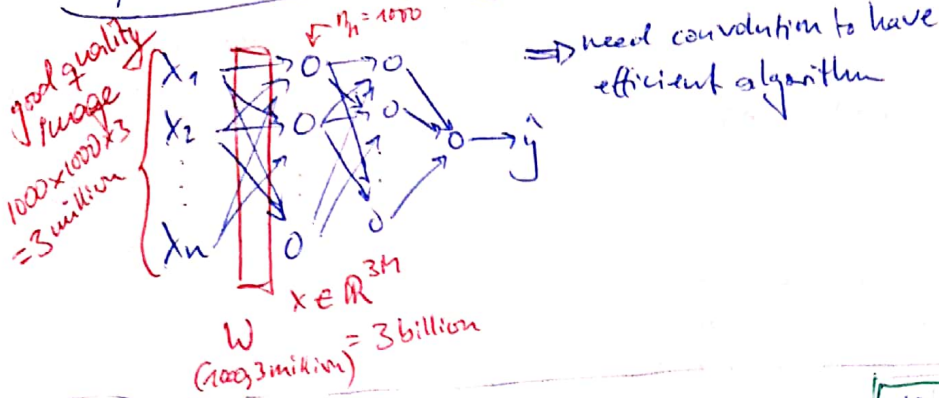 good quality
image
1000x1000x3
=3 million
x1
x2
xn
n_h = 1000
ŷ
⇒ need convolution to have
efficient algorithm
x ∈ ℝ^3M
W
(1000,3 million) = 3 billion